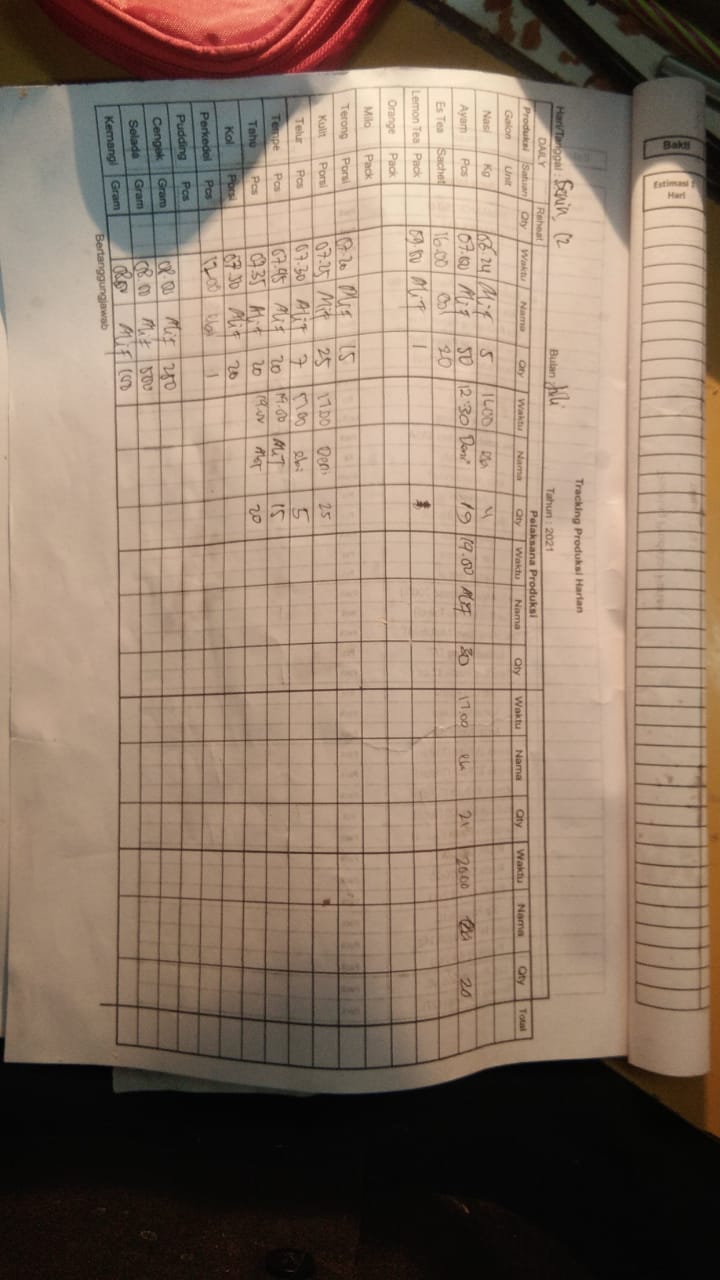 Bakti
Estimasi :
Hari
Tracking Produksi Harian
Hari/Tanggal : Senin, 12 Bulan Juli Tahun : 2021
DAILY Reheat Pelaksana Produksi
Produksi Satuan Qty Waktu Nama Qty Waktu Nama Qty Waktu Nama Qty Waktu Nama Qty Waktu Nama Qty Total
Galon Unit
Nasi Kg 06.24 Mif 5 16.00 4
Ayam Pcs 07.00 Mif 50 12.30 Deni 19 19.00 Mif 30 17.00 21 20.00 20
Es Tea Sachet 16.00 20
Lemon Tea Pack 09.00 Mif 1
Orange Pack
Milo Pack
Terong Porsi 07.20 Mif 15
Kulit Porsi 07.25 Mif 25 17.00 Deni 25
Telur Pcs 07.30 Mif 7 5
Tempe Pcs 07.45 Mif 20 19.00 Mif 15
Tahu Pcs 07.35 Mif 20 19.00 Mif 20
Kol Porsi 07.50 Mif 20
Perkedel Pcs 17.00 1
Pudding Pcs
Cengek Gram 08.00 Mif 250
Selada Gram 08.00 Mif 500
Kemangi Gram 08.00 Mif 100
Bertanggungjawab